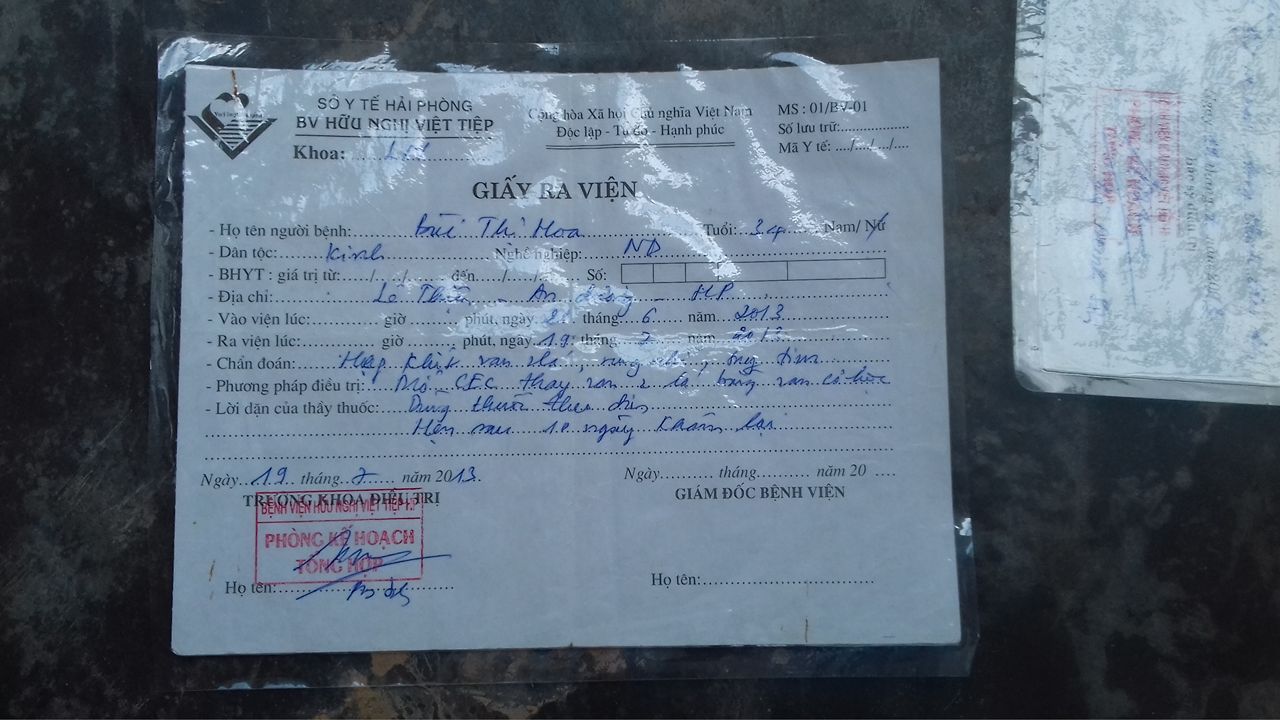 SỞ Y TẾ HẢI PHÒNG
BV HỮU NGHỊ VIỆT TIỆP
Khoa:
Cộng hòa Xã hội Chủ nghĩa Việt Nam
Độc lập - Tự do - Hạnh phúc
MS : 01/BV-01
Số lưu trữ:
Mã Y tế: ..../..../..../....
GIẤY RA VIỆN
- Họ tên người bệnh: Bùi Thị Hoa Tuổi: 34 Nam/ Nữ
- Dân tộc: Kinh Nghề nghiệp: ND
- BHYT : giá trị từ:....../...../...... đến....../...../...... Số:
- Địa chỉ: Lê Thiện - An Dương - HP
- Vào viện lúc: giờ phút, ngày tháng 6 năm 2013
- Ra viện lúc: giờ phút, ngày 19 tháng 7 năm 2013
- Chẩn đoán: Hẹp khít van hai lá, rung nhĩ,
- Phương pháp điều trị: Mổ thay van 2 lá bằng van cơ học
- Lời dặn của thầy thuốc: Dùng thuốc theo đơn
Hẹn sau 10 ngày khám lại
Ngày 19 tháng 7 năm 2013.
TRƯỞNG KHOA ĐIỀU TRỊ
BỆNH VIỆN HỮU NGHỊ VIỆT TIỆP HP
PHÒNG KẾ HOẠCH
TỔNG HỢP
Họ tên:
Ngày............ tháng........... năm 20 .....
GIÁM ĐỐC BỆNH VIỆN
Họ tên: